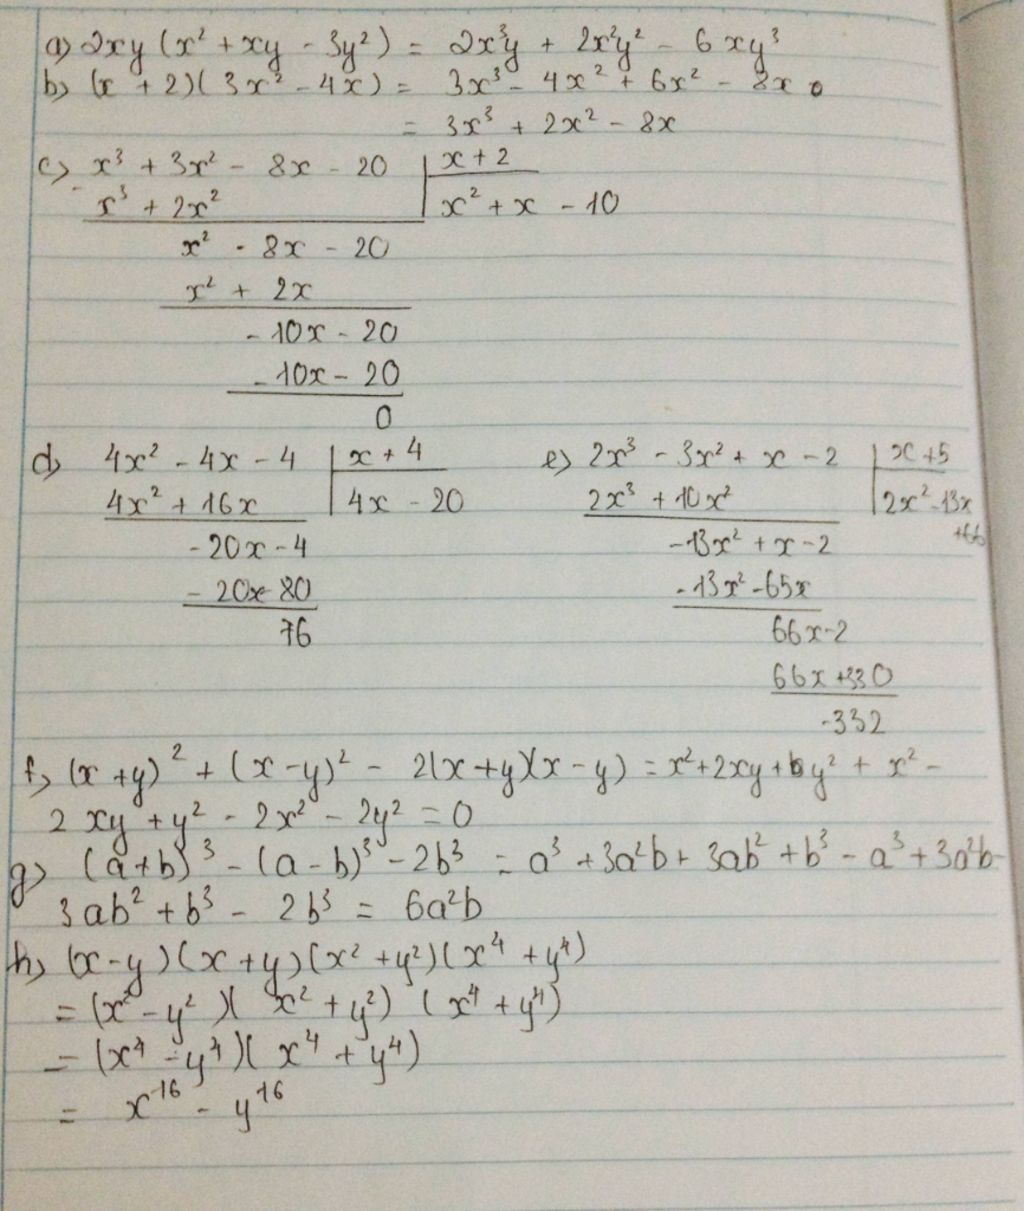 a) 2xy (x² + xy - 3y²) = 2x³y + 2x²y² - 6xy³
b) (x + 2)(3x² - 4x) = 3x³ - 4x² + 6x² - 8x
= 3x³ + 2x² - 8x
c) x³ + 3x² - 8x - 20 | x + 2
- x³ + 2x² | x² + x - 10
x² - 8x - 20
x² + 2x
- 10x - 20
- 10x - 20
0
d) 4x² - 4x - 4 | x + 4
4x² + 16x | 4x - 20
- 20x - 4
- 20x - 80
76
e) 2x³ - 3x² + x - 2 | x + 5
2x³ + 10x² | 2x² - 13x
+66
- 13x² + x - 2
- 13x² - 65x
66x - 2
66x + 330
- 332
f) (x + y)² + (x - y)² - 2(x + y)(x - y) = x² + 2xy + y² + x² -
2xy + y² - 2x² - 2y² = 0
g) (a + b)³ - (a - b)³ - 2b³ = a³ + 3a²b + 3ab² + b³ - a³ + 3a²b -
3ab² + b³ - 2b³ = 6a²b
h) (x - y)(x + y)(x² + y²)(x⁴ + y⁴)
= (x² - y²)(x² + y²)(x⁴ + y⁴)
= (x⁴ - y⁴)(x⁴ + y⁴)
= x¹⁶ - y¹⁶